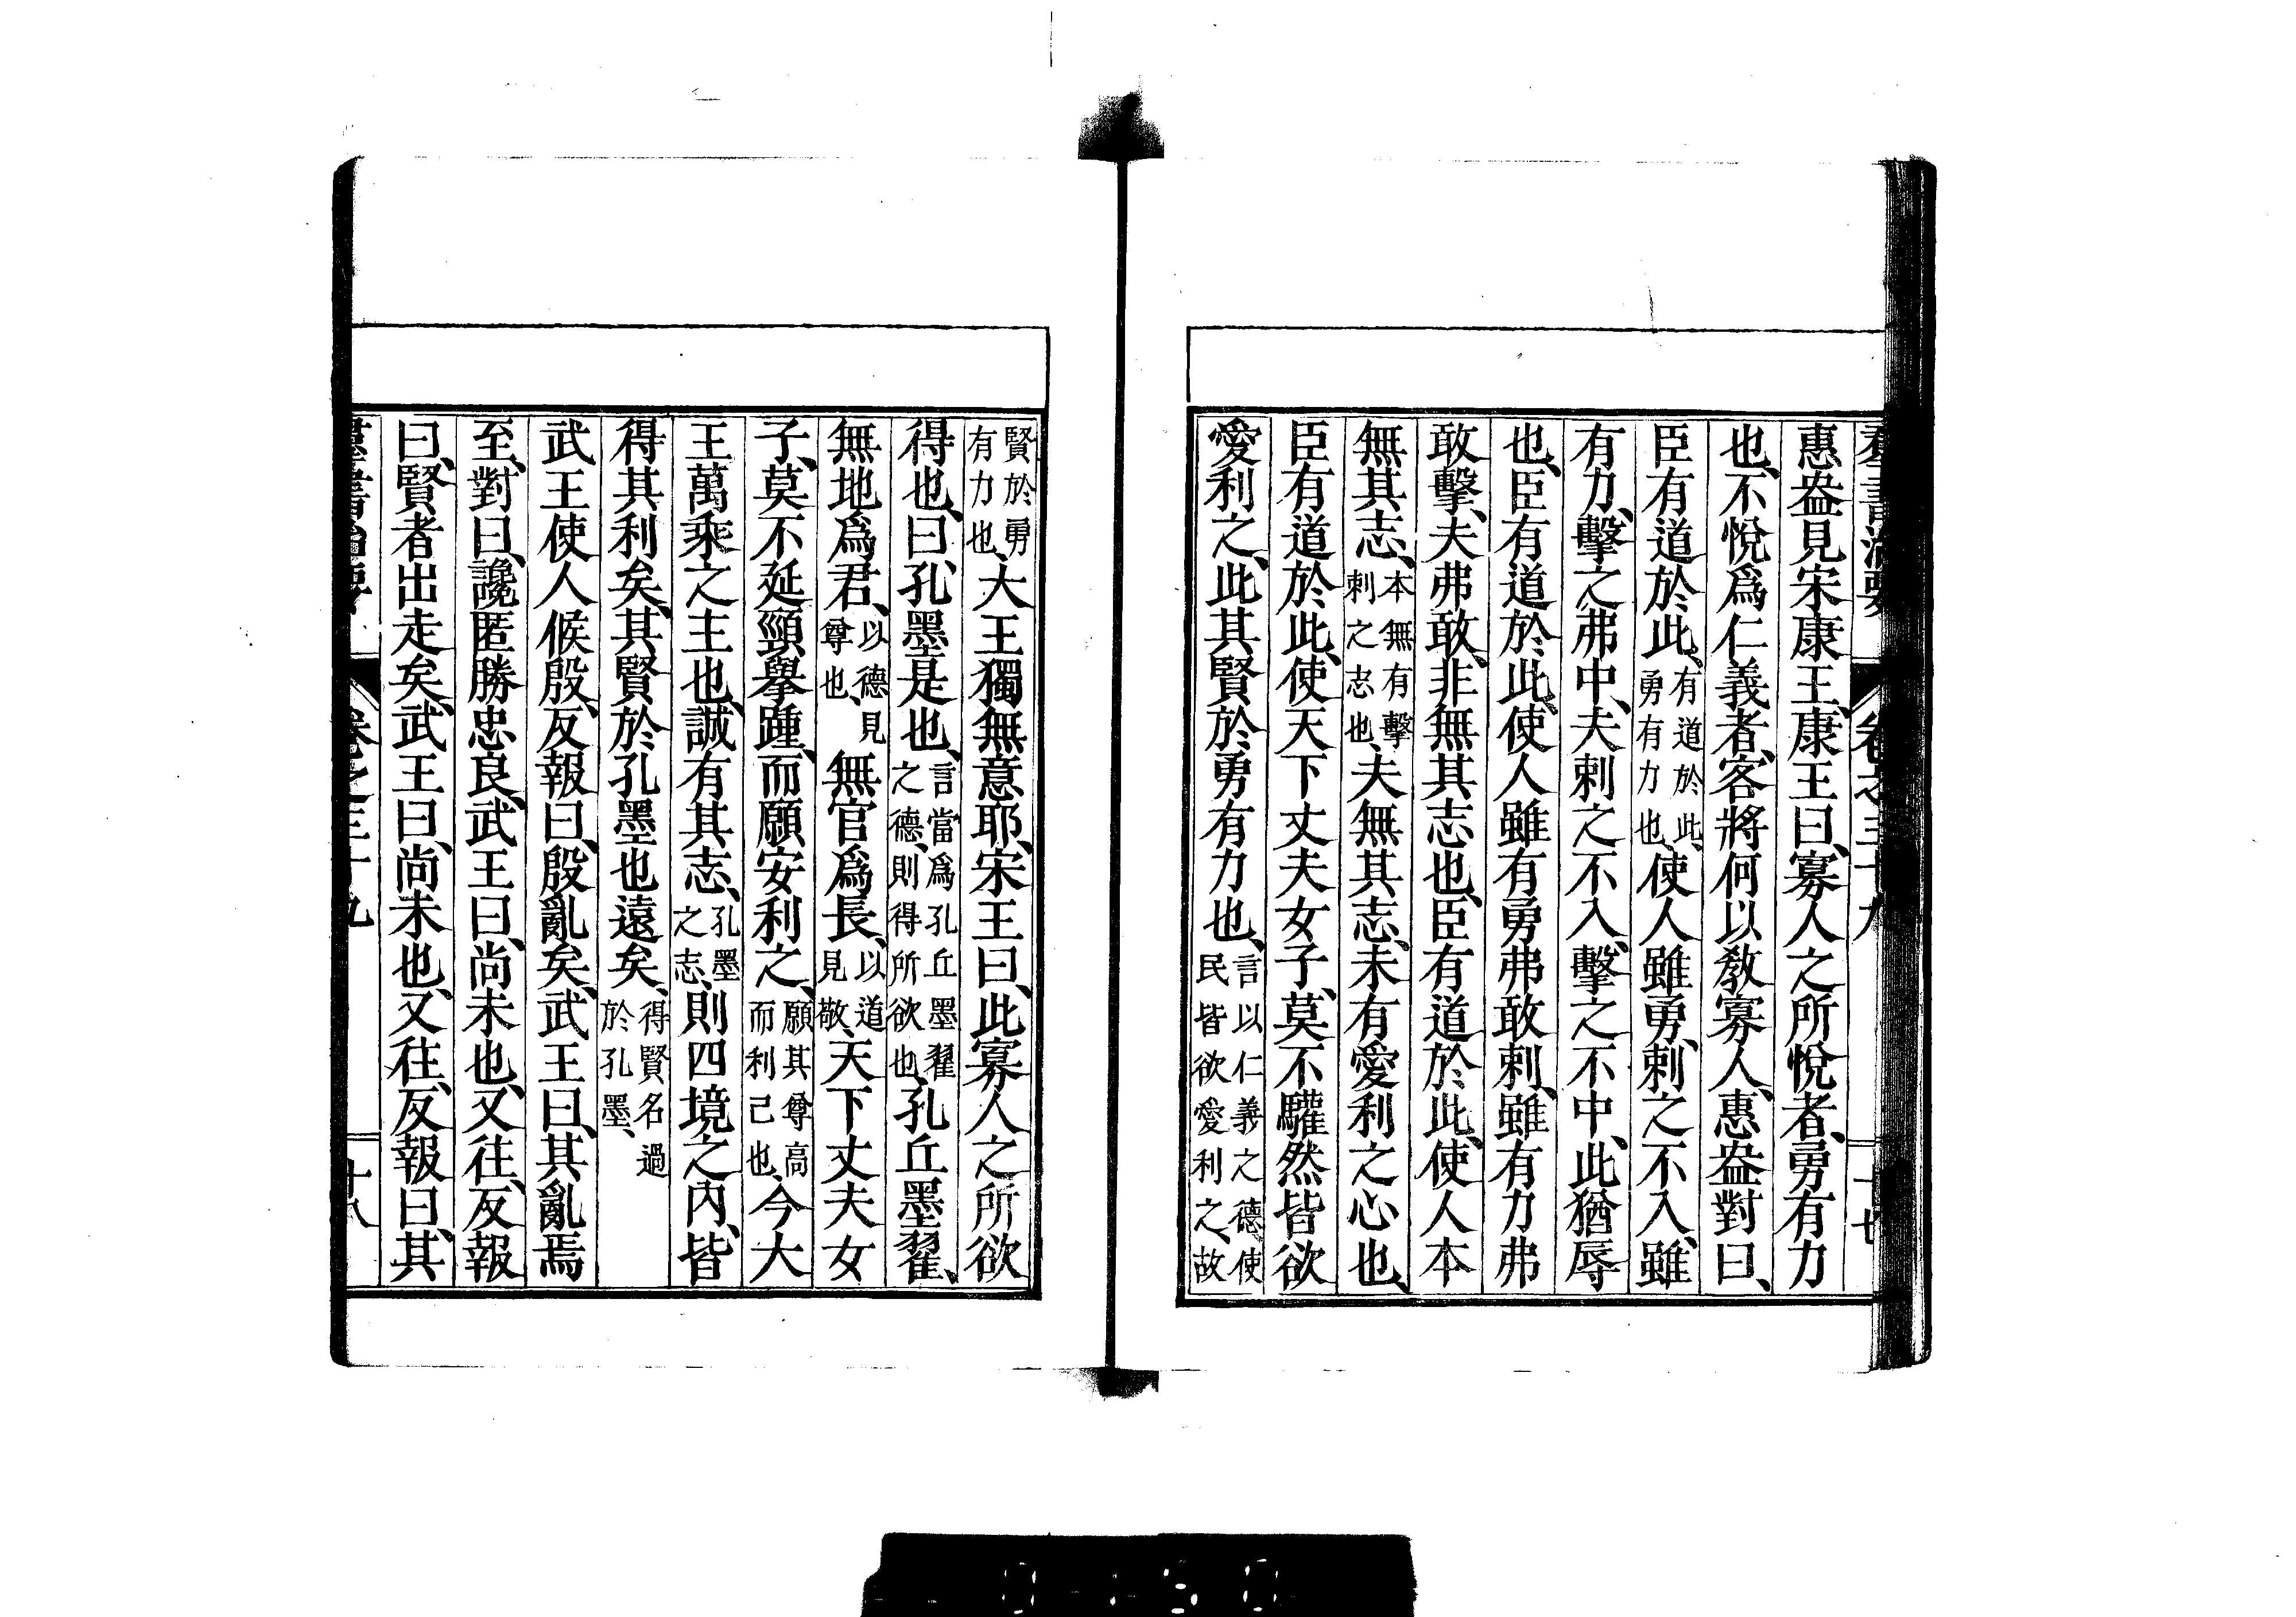 羣書治要 卷之三十九 十七
惠盎見宋康王、康王曰、寡人之所悅者、勇有力
也、不悅爲仁義者、客將何以敎寡人、惠盎對曰、
臣有道於此、有道於此、勇有力也、使人雖勇、刺之不入、雖
有力、擊之弗中、夫刺之不入、擊之不中、此猶辱
也、臣有道於此、使人雖有勇弗敢刺、雖有力弗
敢擊、夫弗敢、非無其志也、臣有道於此、使人本
無其志、本無有擊刺之志也、夫無其志、未有愛利之心也、
臣有道於此、使天下丈夫女子、莫不驩然皆欲
愛利之、此其賢於勇有力也、言以仁義之德使民皆欲愛利之、故
賢於勇有力也、大王獨無意耶、宋王曰、此寡人之所欲
得也、曰、孔墨是也、言當爲孔丘墨翟之德、則得所欲也、孔丘墨翟、
無地爲君、以德見尊也、無官爲長、以道見敬、天下丈夫女
子、莫不延頸擧踵、而願安利之、願其尊高而利己也、今大
王萬乘之主也、誠有其志、孔墨之志、則四境之內、皆
得其利矣、其賢於孔墨也遠矣、得賢名過於孔墨、
武王使人候殷、反報曰、殷亂矣、武王曰、其亂焉
至、對曰、讒匿勝忠良、武王曰、尚未也、又往、反報
曰、賢者出走矣、武王曰、尚未也、又往、反報曰、其
羣書治要 卷之三十九 十八